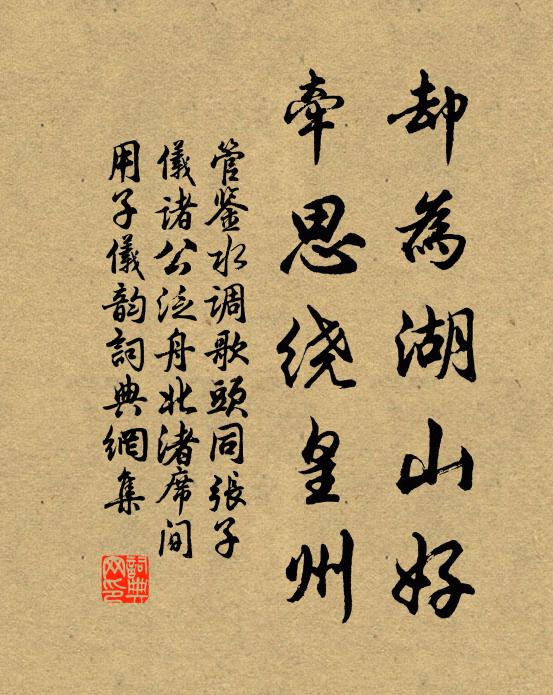 却為湖山好
牽思绕皇州
管鉴水调歌頭同張子
儀諸公泛舟北渚席间
用子儀韵詞典網集
詞典網印